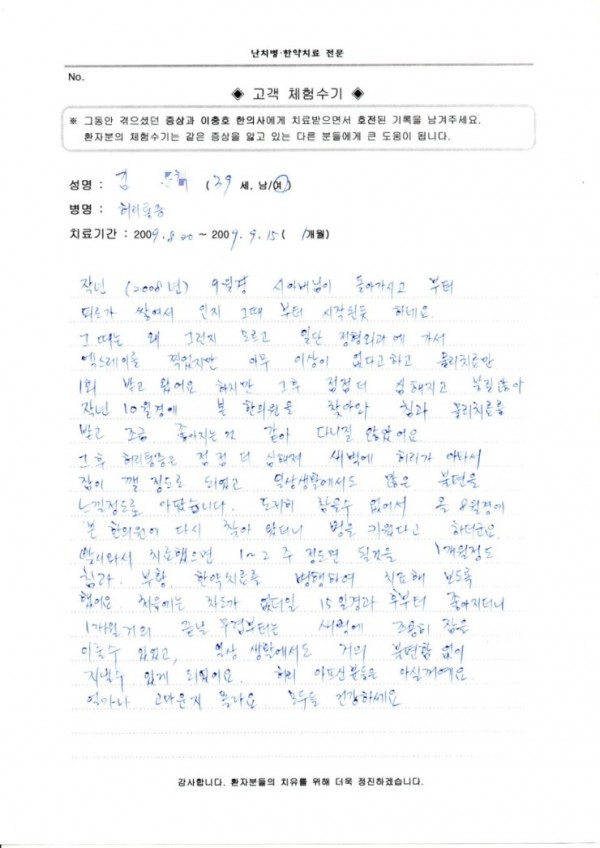 난치병·한약치료 전문
No.
◈ 고객 체험수기 ◈
※ 그동안 겪으셨던 증상과 이충호 한의사에게 치료받으면서 호전된 기록을 남겨주세요.
환자분의 체험수기는 같은 증상을 앓고 있는 다른 분들에게 큰 도움이 됩니다.
성명 : 김 (39 세, 남/여)
병명 : 허리통증
치료기간 : 2009. 8 ~ 2009. 9. 15 ( 1개월)
작년 (2008년) 9월경 시아버님이 돌아가시고 부터
피로가 쌓여서 인지 그때 부터 시작된듯 하네요.
그때는 왜 그런지 모르고 일단 정형외과에 가서
엑스레이를 찍었지만 아무 이상이 없다고하고 물리치료만
1회 받고 왔어요 하지만 그후 점점더 심해지고 불편해서
작년 10월경에 본 한의원을 찾아와 침과 물리치료를
받고 조금 좋아지는것 같아 다니질 않았어요.
그후 허리통증은 점점 더 심해져 새벽에 허리가 아파서
잠이 깰 정도로 되었고 일상생활에서도 많은 불편을
느낄정도로 아팠습니다. 도저히 참을수 없어서 올 8월경에
본 한의원에 다시 찾아 왔더니 병을 키웠다고 하더군요.
빨리와서 치료했으면 1~2주 정도면 될것을 1개월정도
침과, 부항, 한약치료를 병행하여 치료해 보도록
했어요. 처음에는 차도가 없더니 15일경과 후부터 좋아지더니
1개월거의 끝날 무렵부터는 새벽에 조용히 잠을
이룰수 있었고, 일상 생활에서도 거의 불편함 없이
지낼수 있게 되었어요. 허리 아프신분들은 아실꺼예요.
얼마나 고마운지 몰라요. 모두들 건강하세요
감사합니다. 환자분들의 치유를 위해 더욱 정진하겠습니다.